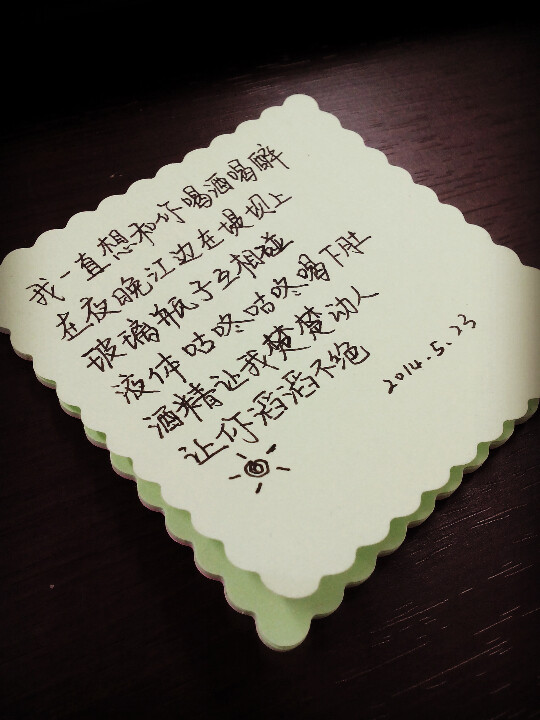 我一直想和你喝酒喝醉
在夜晚江边在堤坝上
玻璃瓶子互相碰
液体咕咚咕咚喝下肚
酒精让我楚楚动人
让你滔滔不绝
2014.5.23